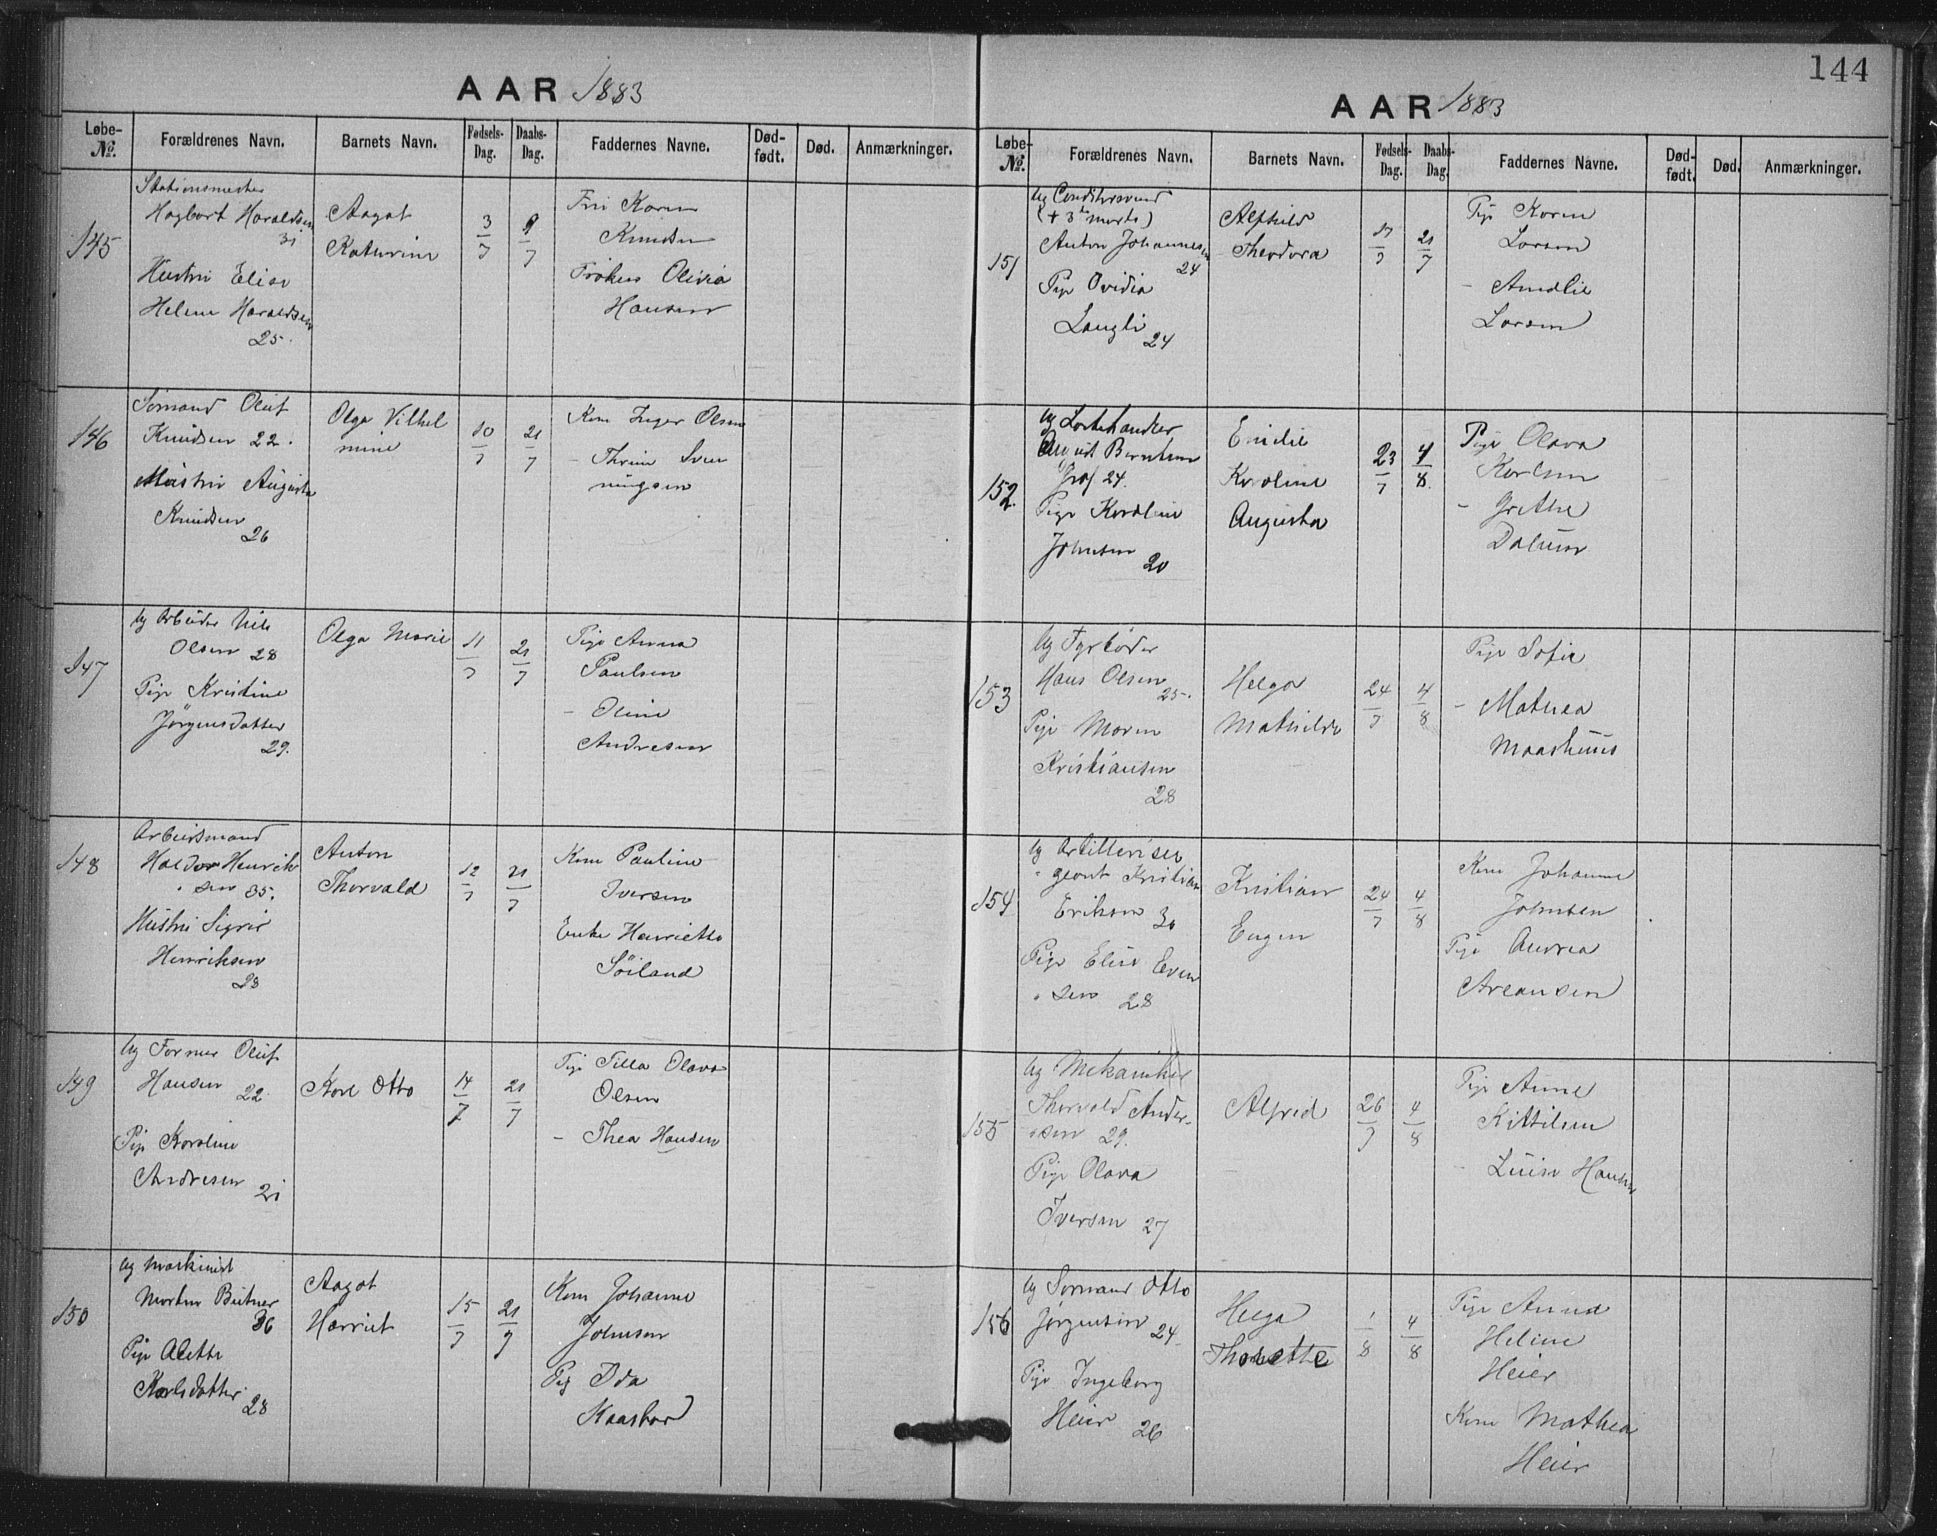 144
AAR 1883
Løbe-No. Forældrenes Navn. Barnets Navn. Fødsels-Dag. Daabs-Dag. Faddernes Navne. Død-født. Død. Anmærkninger.
145
Stationsmester
Hagbart Haraldsen
31
Hustru Elise
Helene Haraldsen
25.
Aagot
Katurine
3/7
9/7
Fru Karen
Knudsen
Frøken Olivia
Hansen
146
Sømand Oluf
Knudsen 22.
Hustru Augusta
Knudsen
26
Olga Vilhel
mine
10/7
21/7
Kone Inger Olsen
- Thrine Sven
ningsen
147
Ug Arbeider Nils
Olsen 28
Pige Kristine
Jørgensdatter
29.
Olga Marie
11/7
21/7
Pige Anna
Paulsen
- Oline
Andresen
148
Arbeidsmand
Haldor Henrik
sen 35.
Hustru Sigrid
Henriksen
23
Anton
Thorvald
12/7
21/7
Kone Pauline
Iversen
Enke Henriette
Søiland
149
Ug Former Oluf
Hansen 22.
Pige Karoline
Andresen 21
Karl Otto
14/7
21/7
Pige Silla Olava
Olsen
- Thea Hansen
150
Ug Maskinist
Morten Bütner
36
Pige Alette
Karlsdatter 28
Aagot
Harriet
15/7
21/7
Kone Johanne
Johnsen
Pig Ida
Kaasbøl
AAR 1883
Løbe-No. Forældrenes Navn. Barnets Navn. Fødsels-Dag. Daabs-Dag. Faddernes Navne. Død-født. Død. Anmærkninger.
151
Ug Conditorsvend
(+ 3de marts)
Anton Johannesen
24
Pige Ovidia
Langli 24
Alfhild
Theodora
17/7
21/7
Pige Karen
Larsen
- Amalie
Larsen
152.
Ug
August Berntsen
Graf 24.
Pige Karoline
Johnsen 20
Emilie
Karoline
Augusta
23/7
4/8
Pige Olava
Karlsen
- Grethe
Dalum
153
Ug Fyrbøder
Hans Olsen
25.
Pige Maren
Kristiansen
28
Helga
Mathilde
24/7
4/8
Pige Sofie
- Mathea
Maashuus
154
Ug Artilleriser
geant Kristian
Eriksen 30
Pige Elise Even
sen 28
Kristian
Eugen
24/7
4/8
Kone Johanne
Johnsen
Pige Andrea
155
Ug Mekaniker
Thorvald Ander-
sen 29.
Pige Olava
Iversen 27
Alfred
26/7
4/8
Pige Anne
Kittilsen
- Luise Hansen
156
Ug Sømand Otto
Jørgensen 24.
Pige Ingeborg
Heier 26
Helga
Thorette
1/8
4/8
Pige Anna
Heline
Heier
Kone Mathea
Heier